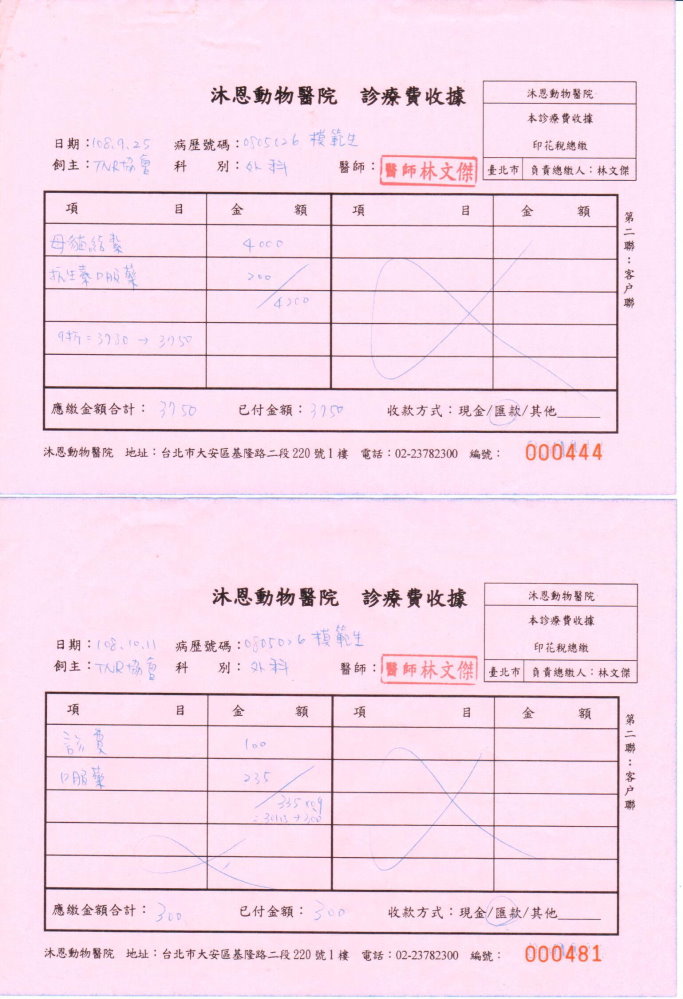 沐恩動物醫院 診療費收據
沐恩動物醫院
本診療費收據
印花稅總繳
臺北市 負責總繳人：林文傑
日期：108.9.25 病歷號碼：0805026 模範生
飼主：TNR協會 科 別：外科 醫師：醫師林文傑
項 目 金 額 項 目 金 額
母貓結紮 4000
抗生素口服藥 200
4200
9折=3780 → 3750
應繳金額合計：3750 已付金額：3750 收款方式：現金/匯款/其他______
第二聯：客户聯
沐恩動物醫院 地址：台北市大安區基隆路二段220號1樓 電話：02-23782300 編號：000444
沐恩動物醫院 診療費收據
沐恩動物醫院
本診療費收據
印花稅總繳
臺北市 負責總繳人：林文傑
日期：108.10.11 病歷號碼：0805026 模範生
飼主：TNR協會 科 別：外科 醫師：醫師林文傑
項 目 金 額 項 目 金 額
診費 100
口服藥 235
335
→ 300
應繳金額合計：300 已付金額：300 收款方式：現金/匯款/其他______
第二聯：客户聯
沐恩動物醫院 地址：台北市大安區基隆路二段220號1樓 電話：02-23782300 編號：000481